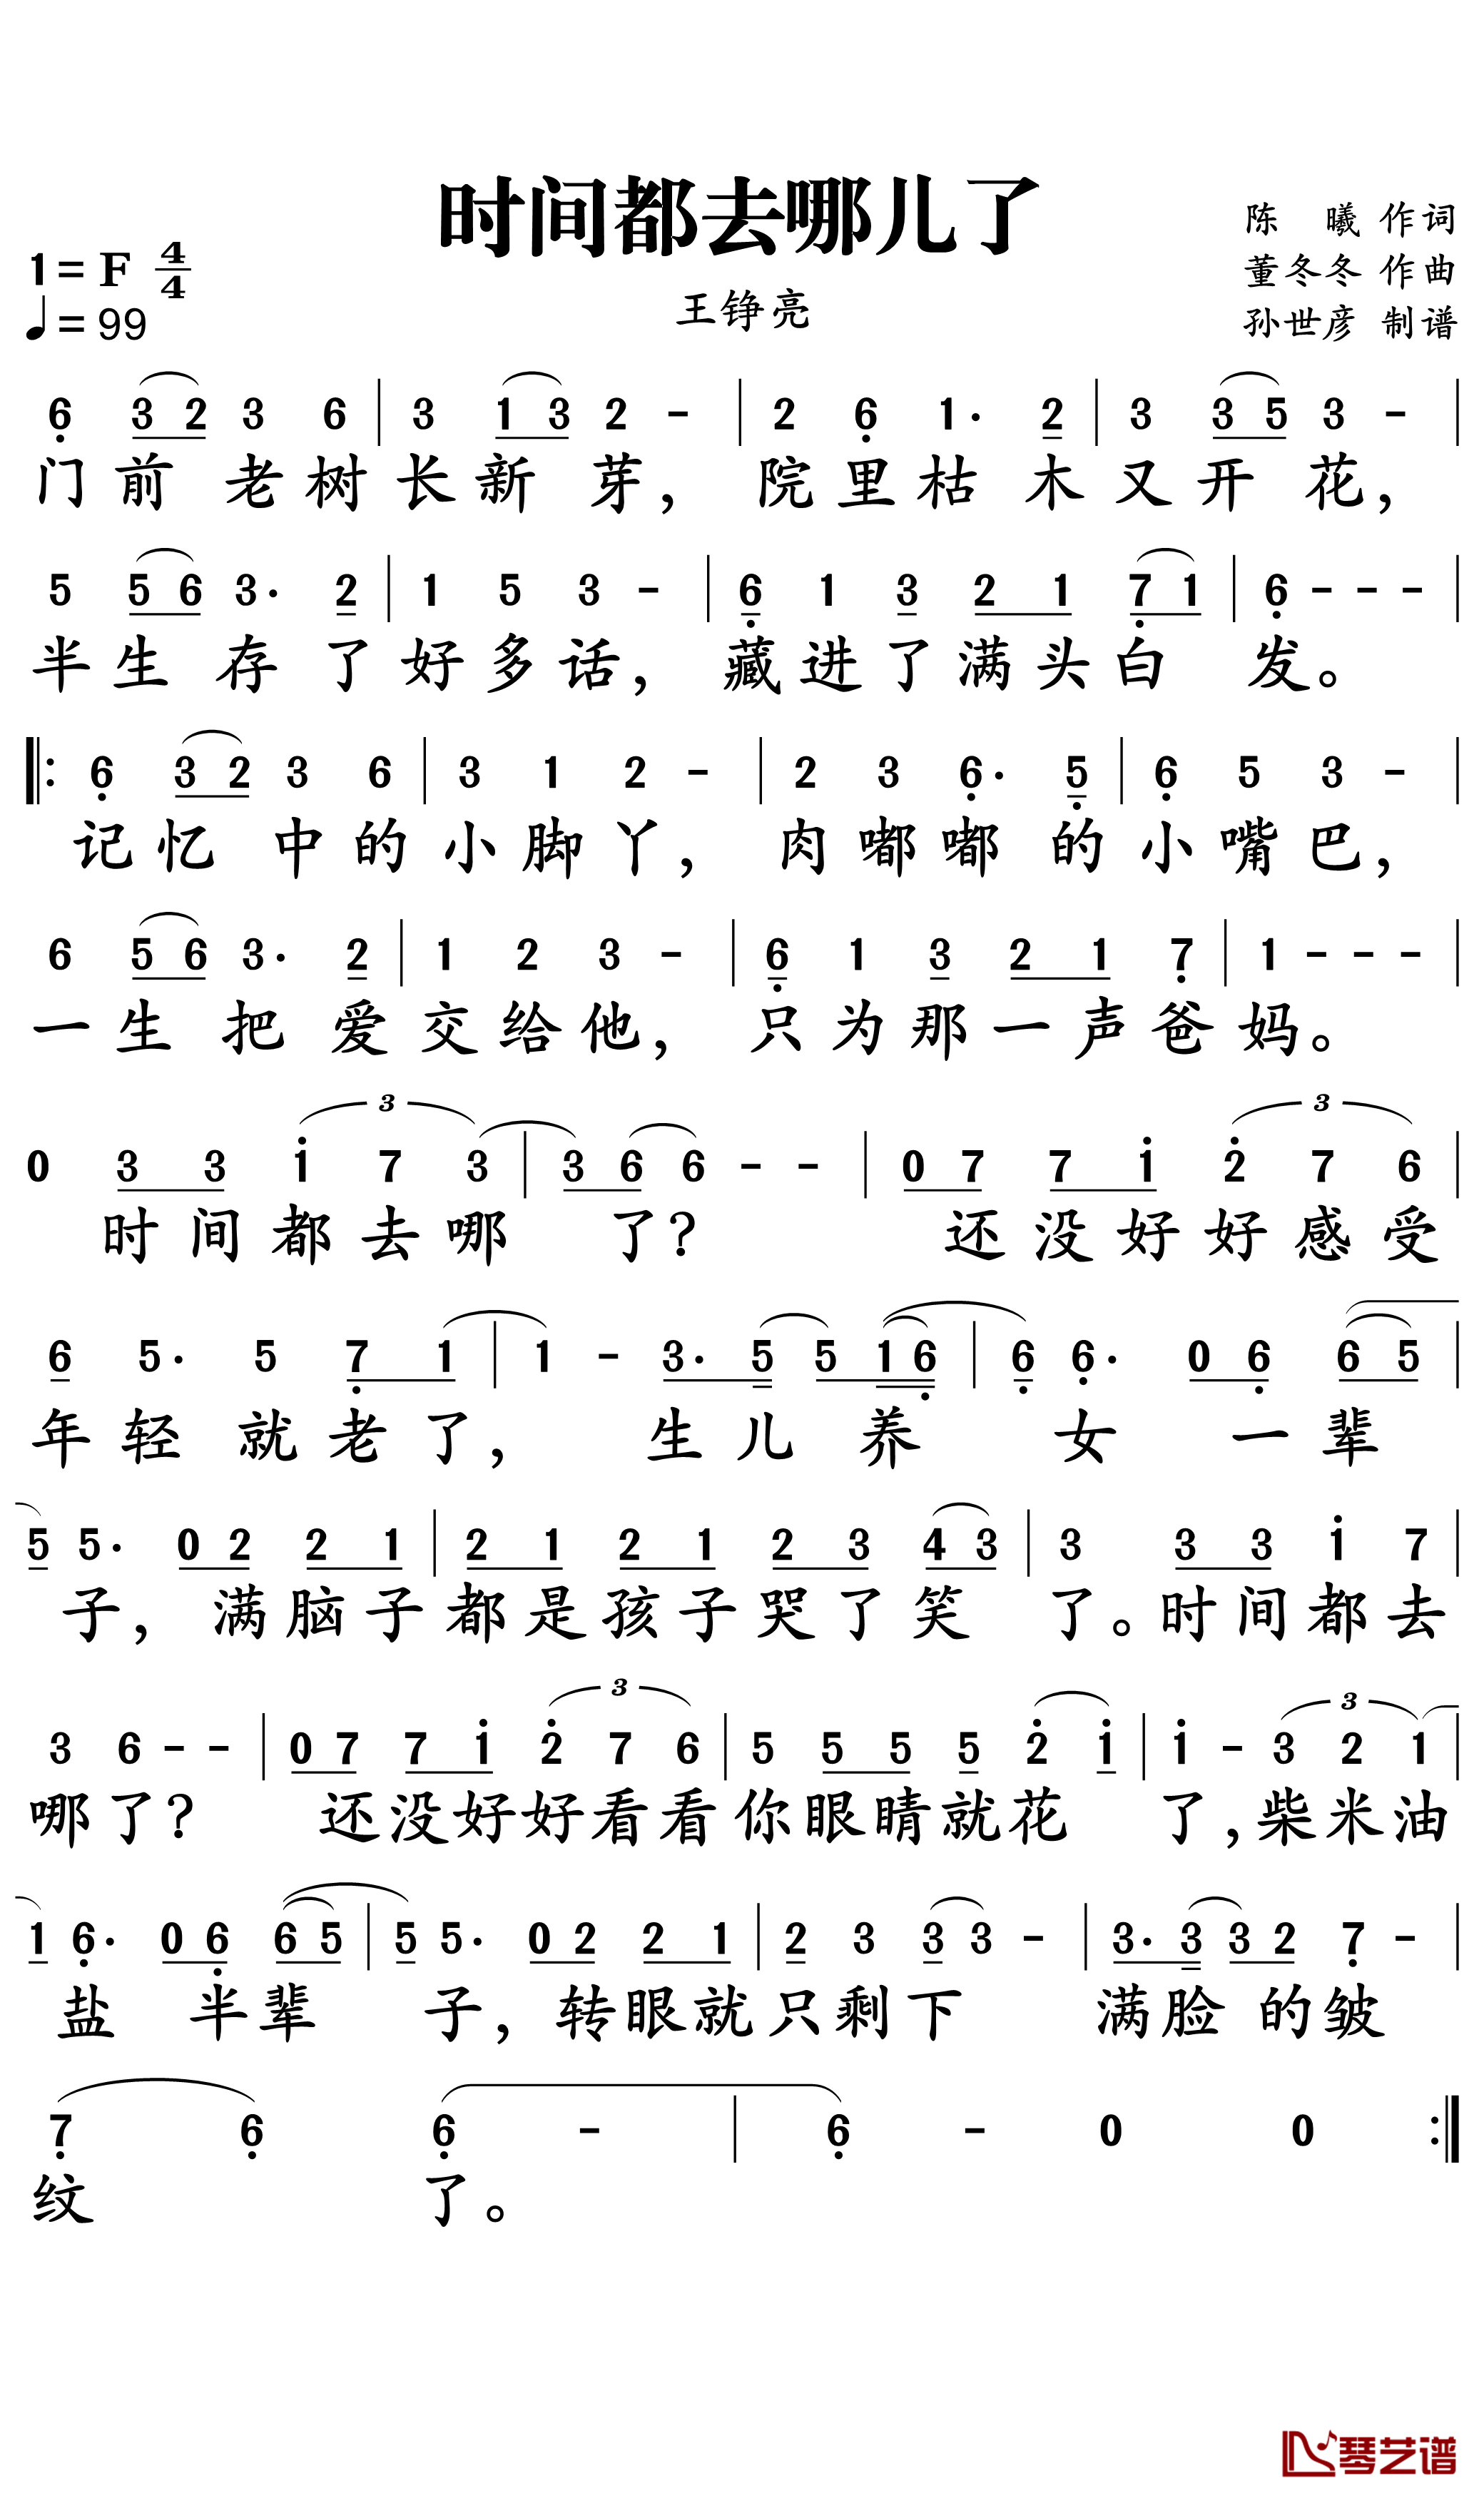 时间都去哪儿了
陈 曦 作词
1=F 4/4
董冬冬 作曲
♩=99
王铮亮
孙世彦 制谱
6 3 2 3 6 | 3 1 3 2 - | 2 6 1· 2 | 3 3 5 3 - |
门前 老树长新 芽，院里枯木又开 花，
5 5 6 3· 2 | 1 5 3 - | 6 1 3 2 1 7 1 | 6 - - - |
半生 存了好多话，藏进了满头白 发。
6 3 2 3 6 | 3 1 2 - | 2 3 6· 5 | 6 5 3 - |
记忆 中的小脚丫，肉嘟嘟的小嘴巴，
6 5 6 3· 2 | 1 2 3 - | 6 1 3 2 1 7 | 1 - - - |
一生 把爱交给他，只为那一声爸妈。
3 3
0 3 3 i 7 3 | 3 6 6 - - | 0 7 7 i 2 7 6 |
时间都去哪 了？ 还没好好感受
6 5· 5 7 1 | 1 - 3· 5 5 1 6 | 6 6· 0 6 6 5 |
年轻就老了， 生儿养 女 一辈
5 5· 0 2 2 1 | 2 1 2 1 2 3 4 3 | 3 3 3 i 7 |
子，满脑子都是孩子哭了笑 了。时间都去
3 3
3 6 - - | 0 7 7 i 2 7 6 | 5 5 5 5 2 i | i - 3 2 1 |
哪了？ 还没好好看看你眼睛就花 了，柴米油
1 6· 0 6 6 5 | 5 5· 0 2 2 1 | 2 3 3 3 - | 3· 3 3 2 7 - |
盐 半辈 子，转眼就只剩下 满脸的皱
7 6 6 - | 6 - 0 0
纹 了。
琴艺谱